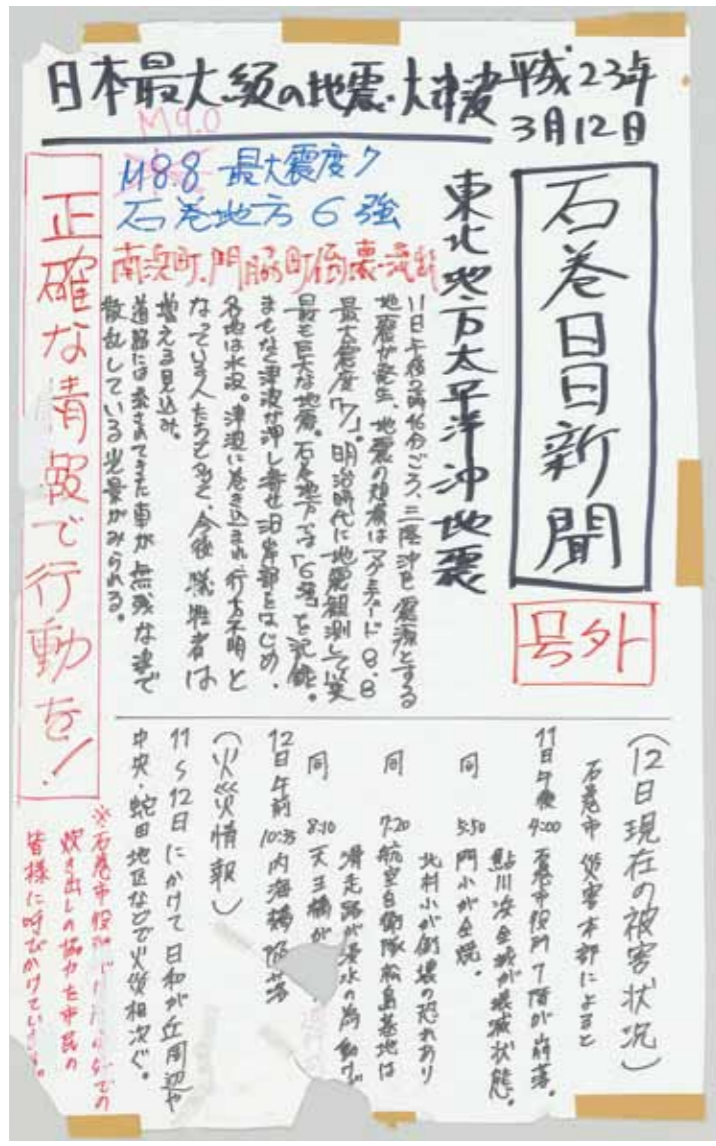 日本最大級の地震・大津波
平成23年
3月12日
石巻日日新聞
号外
東北地方太平洋沖地震
M9.0
M8.8 最大震度7
石巻地方6強
南浜町、門脇町倒壊・流出
11日午後2時46分ごろ、三陸沖を震源とする
地震が発生、地震の規模はマグニチュード8.8
最大震度「7」。明治時代に地震観測して以来
最も巨大な地震。石巻地方では「6強」を記録。
まもなく津波が押し寄せ沿岸部をはじめ、
各地は水没。津波に巻き込まれ行方不明と
なっている人たちも多く、今後犠牲者は
増える見込み。
道路には流されてきた車が無残な姿で
散乱している光景がみられる。
正確な情報で行動を!
(12日現在の被害状況)
石巻市災害本部によると
11日午後4:00 石巻市役所7階が崩落。
鮎川浜全域が壊滅状態。
同 5:50 門小が全焼。
北村小が倒壊の恐れあり
同 7:20 航空自衛隊松島基地は
滑走路が浸水の為動けず
同 8:10 天王橋が
12日午前10:35 内海橋
(火災情報)
11〜12日にかけて日和が丘周辺や
中央・蛇田地区などで火災相次ぐ。
※石巻市役所 での
炊き出しの協力を市民の
皆様に呼びかけています。